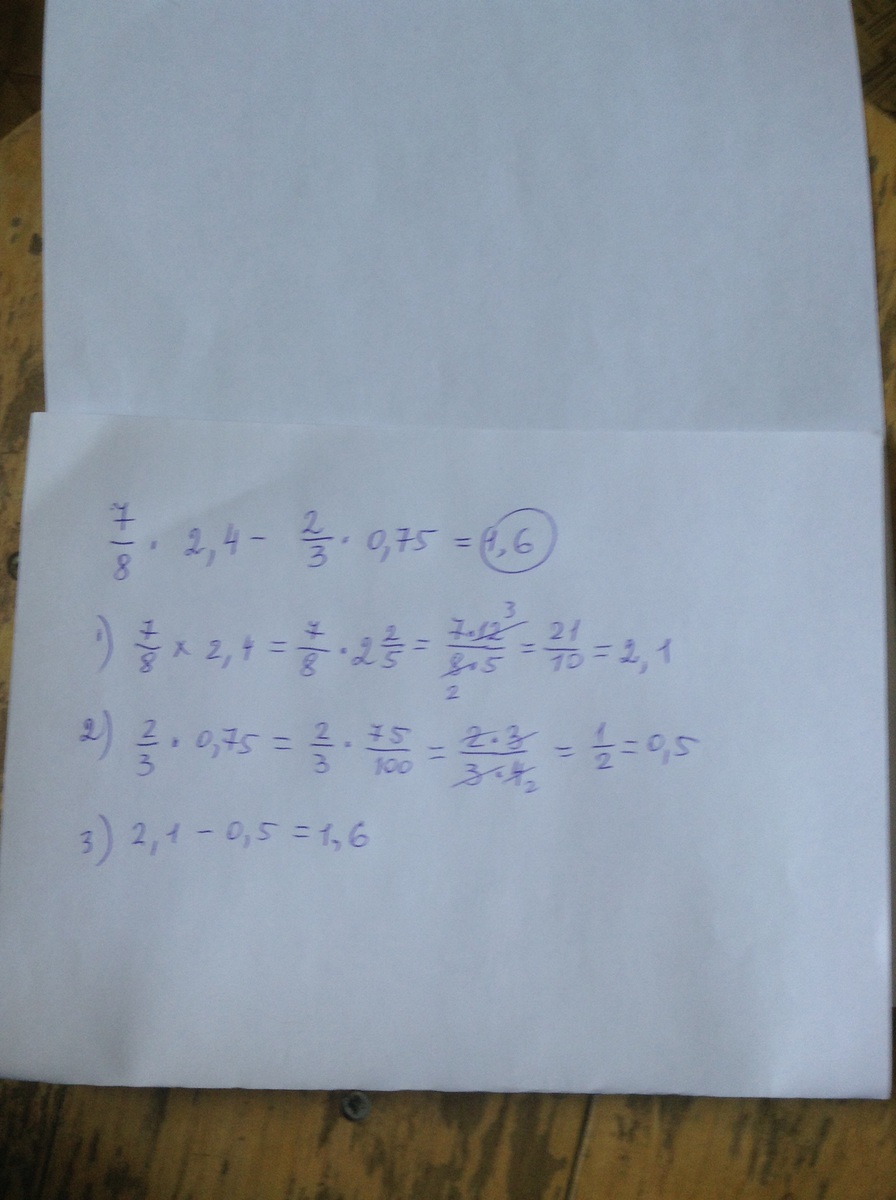 7/8 · 2,4 - 2/3 · 0,75 = 1,6
1) 7/8 × 2,4 = 7/8 · 2 2/5 = 7·12 3/8·5 2 = 21/10 = 2,1
2) 2/3 · 0,75 = 2/3 · 75/100 = 2·3/3·4 2 = 1/2 = 0,5
3) 2,1 - 0,5 = 1,6